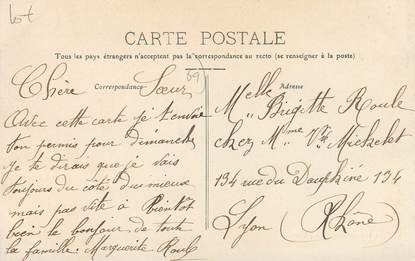 lot
CARTE POSTALE
Tous les pays étrangers n'acceptent pas la correspondance au recto (se renseigner à la poste)
Correspondance
Adresse
89
Chère Sœur
Avec cette carte je t'envoie
ton permis pour dimanche
je te dirais que je vais
toujours du côté du mieux
mais pas vite à bientôt
bien le bonjour de toute
la famille. Marguerite Roule
Melle Brigitte Roule
chez Mme Vve Michelet
134 rue du Dauphiné 134
Lyon (Rhône)